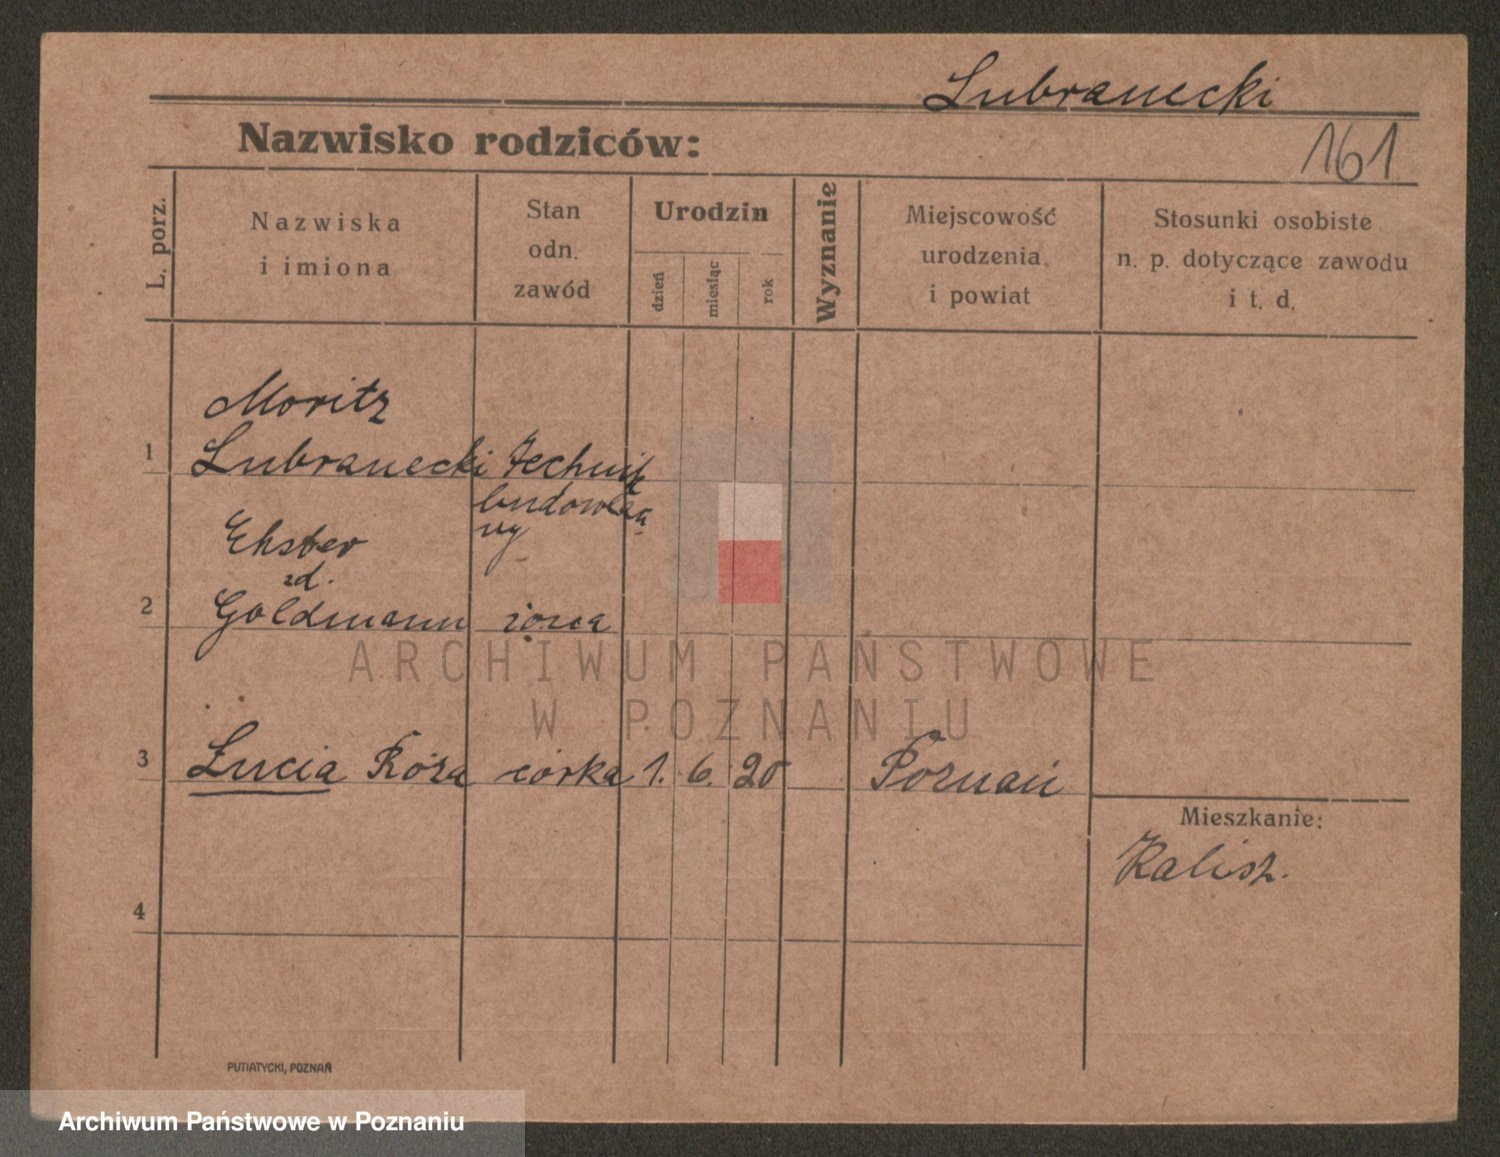 Lubranecki
Nazwisko rodziców:
161
L. porz.
Nazwiska
i imiona
Stan
odn.
zawód
Urodzin
dzień
miesiąc
rok
Wyznanie
Miejscowość
urodzenia
i powiat
Stosunki osobiste
n. p. dotyczące zawodu
i t. d.
Moritz
1 Lubranecki technik
budowla
ny
Ehster
zd.
2 Goldmann żona
ARCHIWUM PAŃSTWOWE
W POZNANIU
3 Lucia Róża córka 1. 6. 20 Poznań
Mieszkanie:
Kalisz.
4
PUTIATYCKI, POZNAŃ
Archiwum Państwowe w Poznaniu